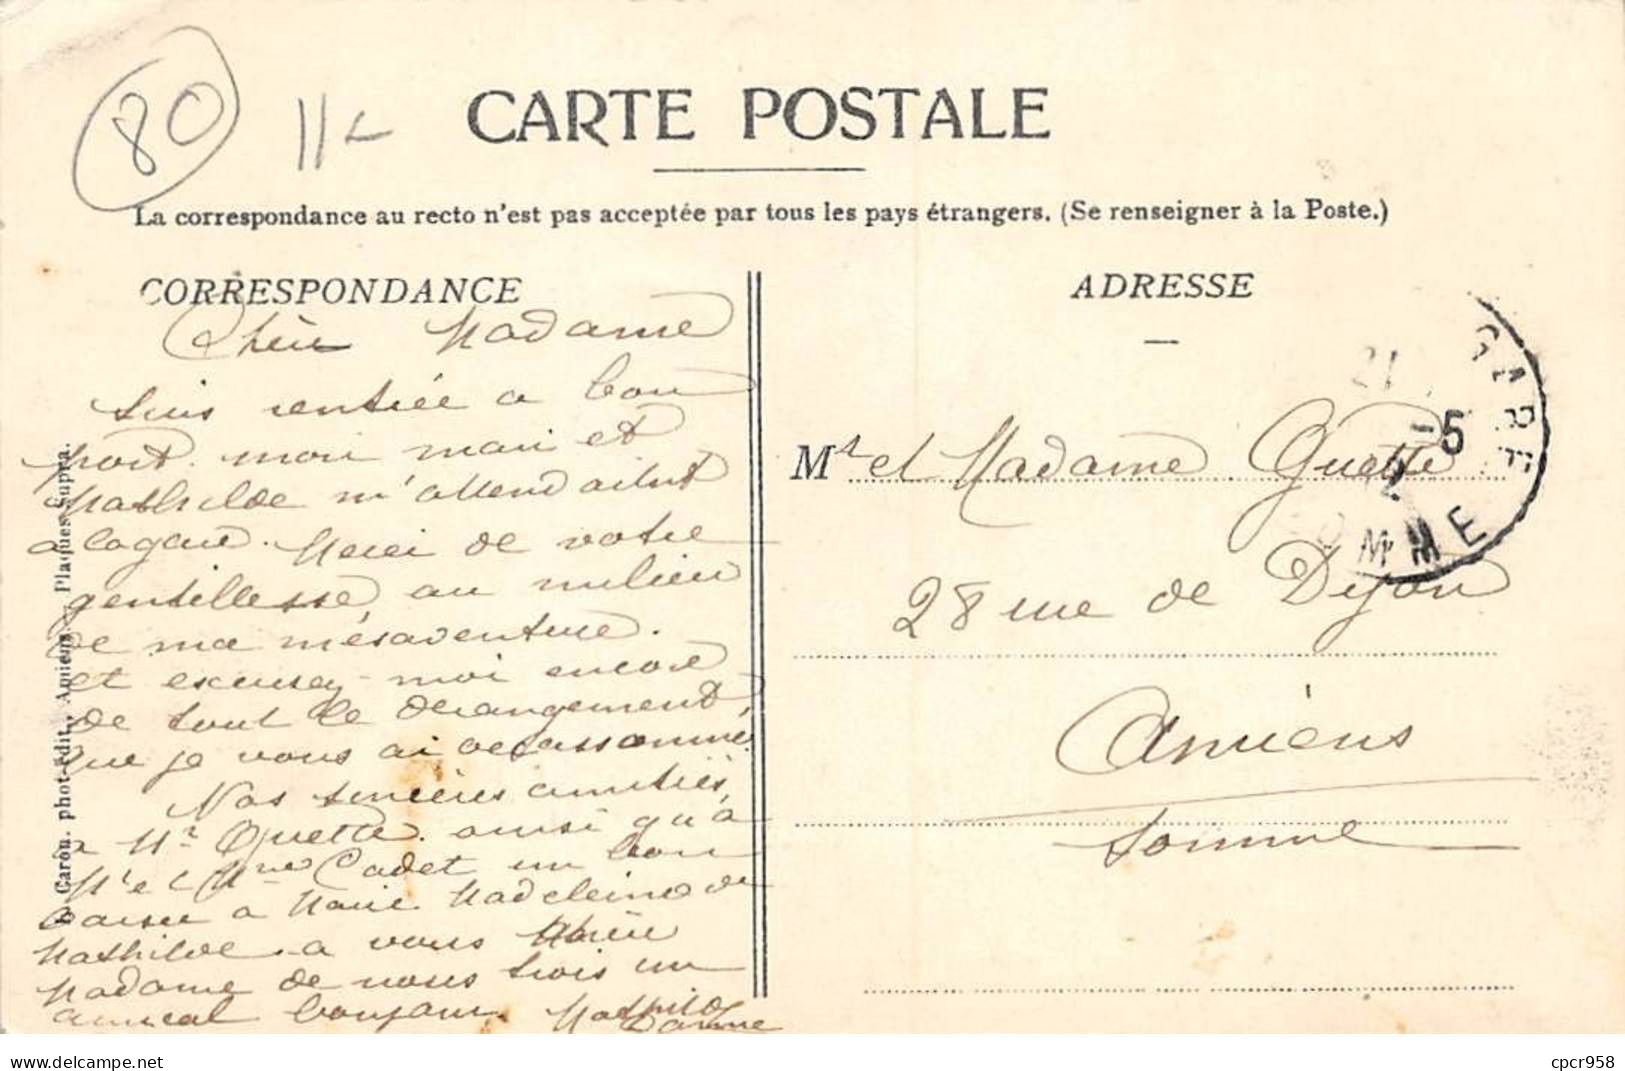 80
CARTE POSTALE
La correspondance au recto n'est pas acceptée par tous les pays étrangers. (Se renseigner à la Poste.)
CORRESPONDANCE
Chère Madame
suis rentrée a bon
port. mon mari et
Mathilde m'attendait
a la gare. Merci de votre
gentillesse, au milieu
de ma mésaventure.
et excusez-moi encore
de tout le derangement,
que je vous ai occassonné.
Nos sincères amitiés,
a Mr Quette. ainsi qu'à
Mr et Mme Cadet un bon
baiser à Marie Madeleine de
Mathilde. a vous Chère
Madame de nous trois un
amical bonjour. Mathilde
Caron. phot-édit., Amiens. Plaques Supra.
ADRESSE
Mr et Madame Quette
28 rue de Dijon
Amiens
Somme
GARE
21
-5
12
OMME
delcampe.net
cpcr958